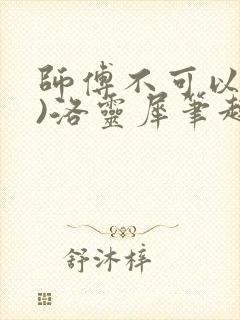 師傅不可以
)洛靈犀筆趣
舒沐梓